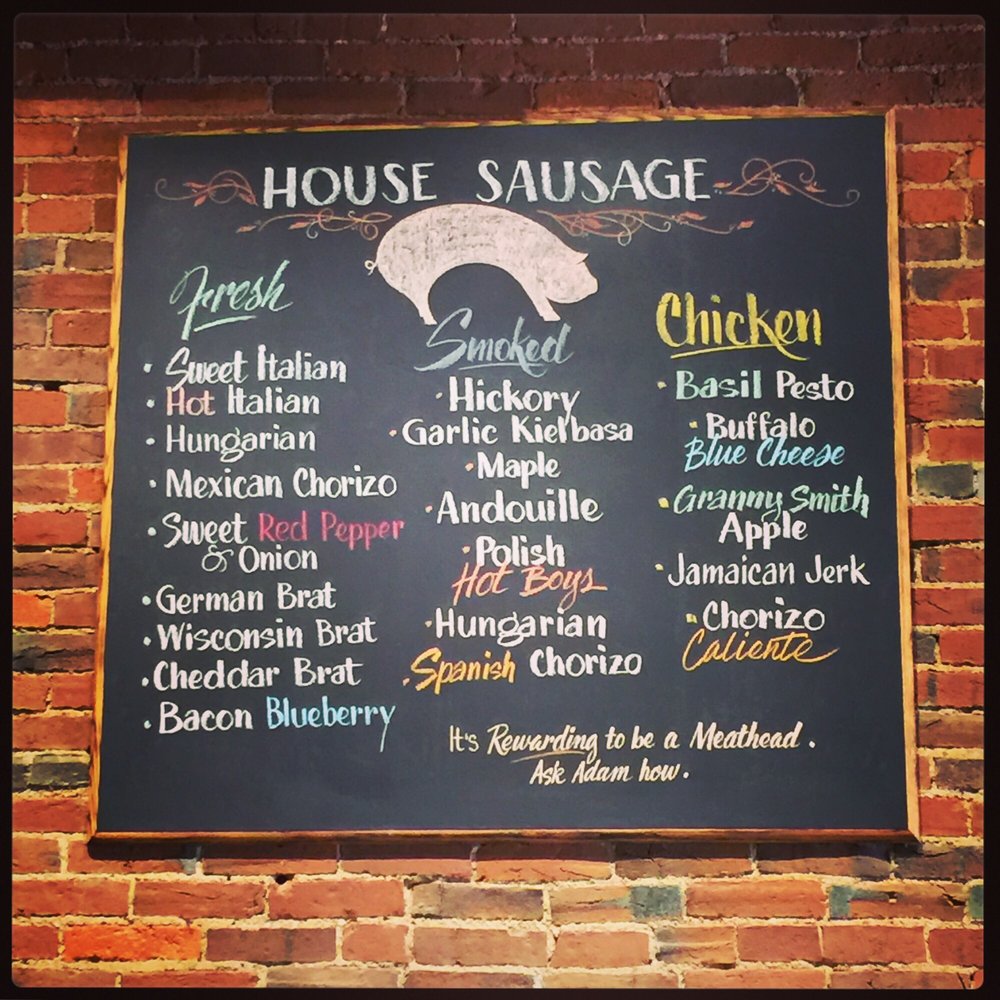 HOUSE SAUSAGE
Fresh
• Sweet Italian
• Hot Italian
• Hungarian
• Mexican Chorizo
• Sweet Red Pepper
& Onion
• German Brat
• Wisconsin Brat
• Cheddar Brat
• Bacon Blueberry
Smoked
• Hickory
• Garlic Kielbasa
• Maple
• Andouille
• Polish
Hot Boys
• Hungarian
• Spanish Chorizo
Chicken
• Basil Pesto
• Buffalo
Blue Cheese
• Granny Smith
Apple
• Jamaican Jerk
• Chorizo
Caliente
It's Rewarding to be a Meathead.
Ask Adam how.